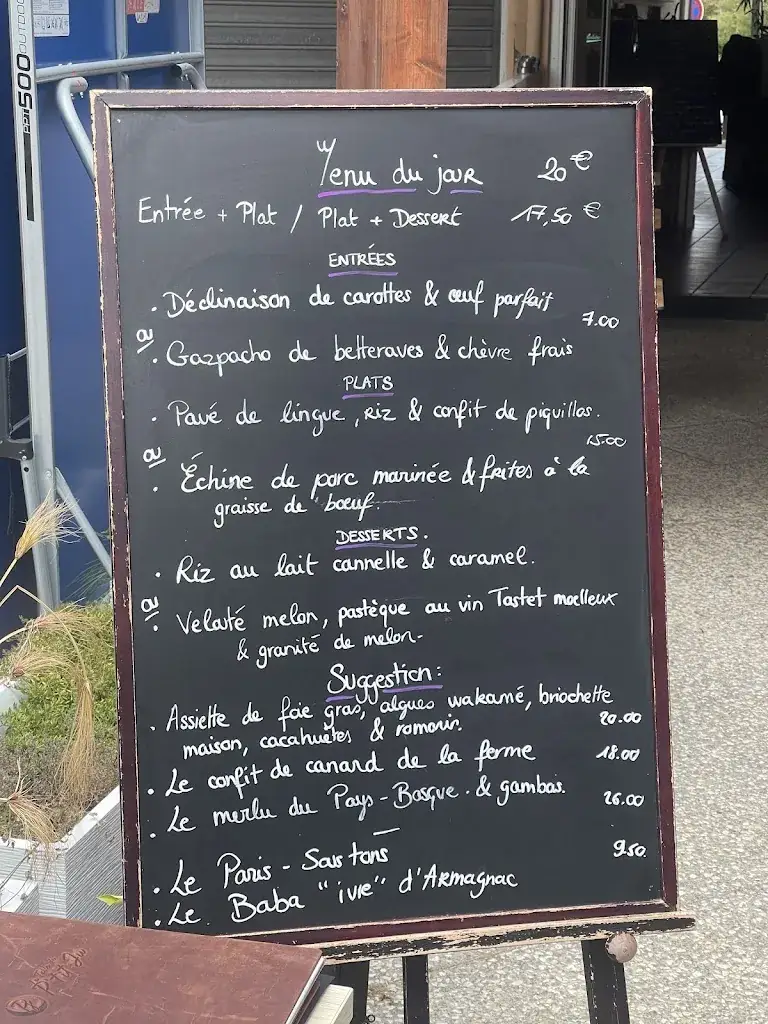 Menu du jour 20€
Entrée + Plat / Plat + Dessert 17,50 €
ENTRÉES
· Déclinaison de carottes & œuf parfait
ou 7.00
· Gazpacho de betteraves & chèvre frais
PLATS
· Pavé de lingue, riz & confit de piquillos.
ou 15.00
· Échine de porc marinée & frites à la
graisse de bœuf.
DESSERTS.
· Riz au lait cannelle & caramel.
ou
· Velouté melon, pastèque au vin Tastet moelleux
& granité de melon-
Suggestion:
· Assiette de foie gras, algues wakamé, briochette
maison, cacahuètes & romarin. 20.00
· Le confit de canard de la ferme 18.00
· Le merlu du Pays-Basque. & gambas. 26.00
· Le Paris - Soustons 9.50
· Le Baba "ivre" d'Armagnac
500 OUTDOOR